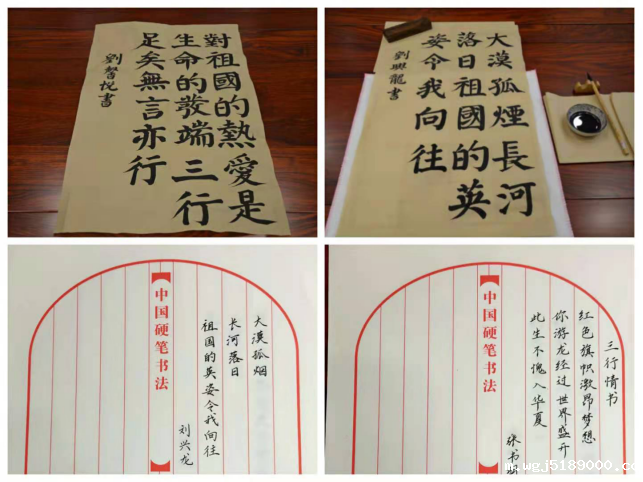 對祖國的熱愛是
生命的發端三行
足矣無言亦行
劉悅書
大漠孤煙長河
落日祖國的英
姿令我向往
劉興龍書
大漠孤烟
长河落日
祖国的英姿令我向往
刘兴龙
中国硬笔书法
三行情书
红色旗帜激昂梦想
你游龙经过世界盛开
此生不愧入华夏
张书
中国硬笔书法
m.wgj5189000.co